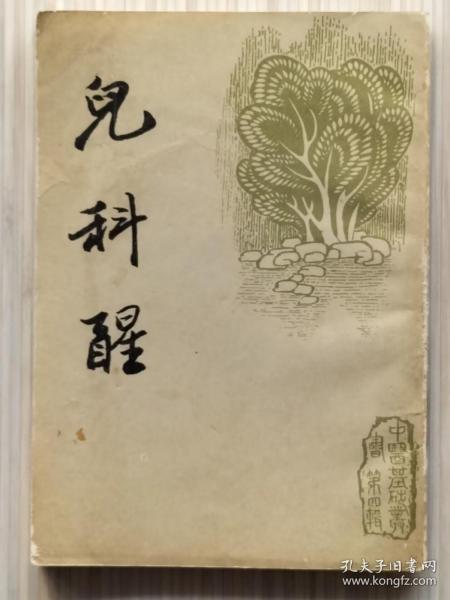 兒科醒
中醫基础叢
書 第四輯
孔夫子旧书网
www.kongfz.com